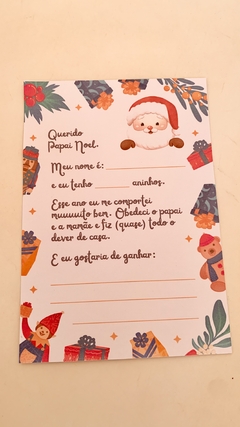 Querido
Papai Noel,
Meu nome é:
e eu tenho aninhos.
Esse ano eu me comportei
muuuuito bem. Obedeci o papai
e a mamãe e fiz (quase) todo o
dever de casa.
E eu gostaria de ganhar: